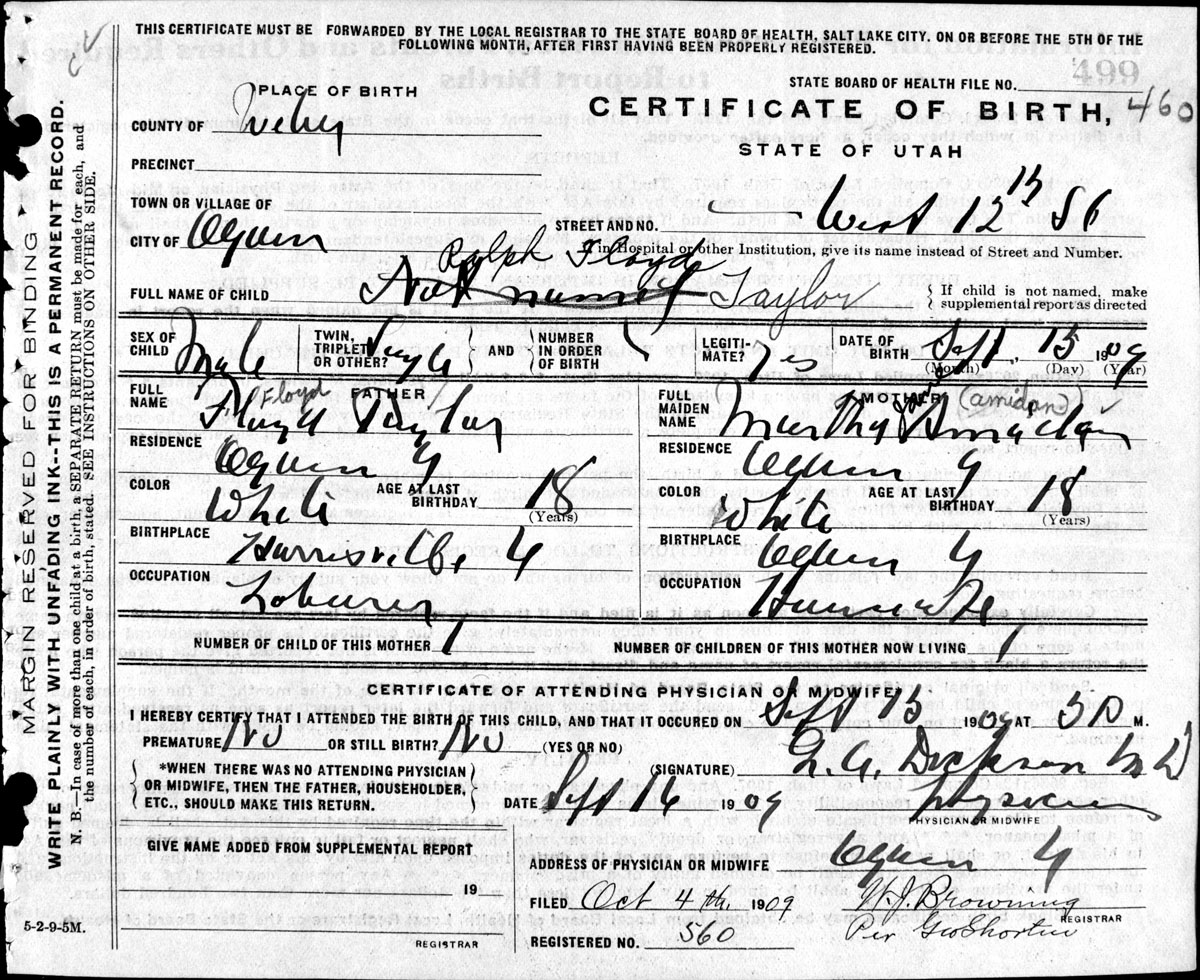 THIS CERTIFICATE MUST BE FORWARDED BY THE LOCAL REGISTRAR TO THE STATE BOARD OF HEALTH, SALT LAKE CITY, ON OR BEFORE THE 5TH OF THE
FOLLOWING MONTH, AFTER FIRST HAVING BEEN PROPERLY REGISTERED.
499
STATE BOARD OF HEALTH FILE NO.
PLACE OF BIRTH
CERTIFICATE OF BIRTH, 460
STATE OF UTAH
COUNTY OF Weber
PRECINCT
TOWN OR VILLAGE OF
CITY OF Ogden
STREET AND NO. West 12th St
If in Hospital or other Institution, give its name instead of Street and Number.
Ralph Floyd
FULL NAME OF CHILD Not named Taylor
If child is not named, make
supplemental report as directed
SEX OF CHILD Male
TWIN, TRIPLET OR OTHER? Single
AND NUMBER IN ORDER OF BIRTH
LEGITI-MATE? Yes
DATE OF BIRTH Sept. 15 1909
(Month) (Day) (Year)
FATHER
FULL NAME Floyd Taylor
Floyd
RESIDENCE Ogden U
COLOR White
AGE AT LAST BIRTHDAY 18
(Years)
BIRTHPLACE Harrisville U
OCCUPATION Laborer
MOTHER
FULL MAIDEN NAME Martha Amadan
(amidan)
RESIDENCE Ogden U
COLOR White
AGE AT LAST BIRTHDAY 18
(Years)
BIRTHPLACE Ogden U
OCCUPATION Housewife
NUMBER OF CHILD OF THIS MOTHER 1
NUMBER OF CHILDREN OF THIS MOTHER NOW LIVING 1
CERTIFICATE OF ATTENDING PHYSICIAN OR MIDWIFE
I HEREBY CERTIFY THAT I ATTENDED THE BIRTH OF THIS CHILD, AND THAT IT OCCURED ON Sept 15 1909 AT M.
PREMATURE No OR STILL BIRTH? No (YES OR NO)
*WHEN THERE WAS NO ATTENDING PHYSICIAN
OR MIDWIFE, THEN THE FATHER, HOUSEHOLDER,
ETC., SHOULD MAKE THIS RETURN.
(SIGNATURE) Dickson MD
DATE Sept 16 1909 physician
PHYSICIAN OR MIDWIFE
GIVE NAME ADDED FROM SUPPLEMENTAL REPORT
19
REGISTRAR
ADDRESS OF PHYSICIAN OR MIDWIFE Ogden U
FILED Oct 4th 1909 W. J. Browning
REGISTRAR
REGISTERED NO. 560 Per Geo Shorten
5-2-9-5M.
MARGIN RESERVED FOR BINDING
WRITE PLAINLY WITH UNFADING INK--THIS IS A PERMANENT RECORD.
N. B.—In case of more than one child at a birth a SEPARATE RETURN must be made for each, and
the number of each, in order of birth, stated. SEE INSTRUCTIONS ON OTHER SIDE.